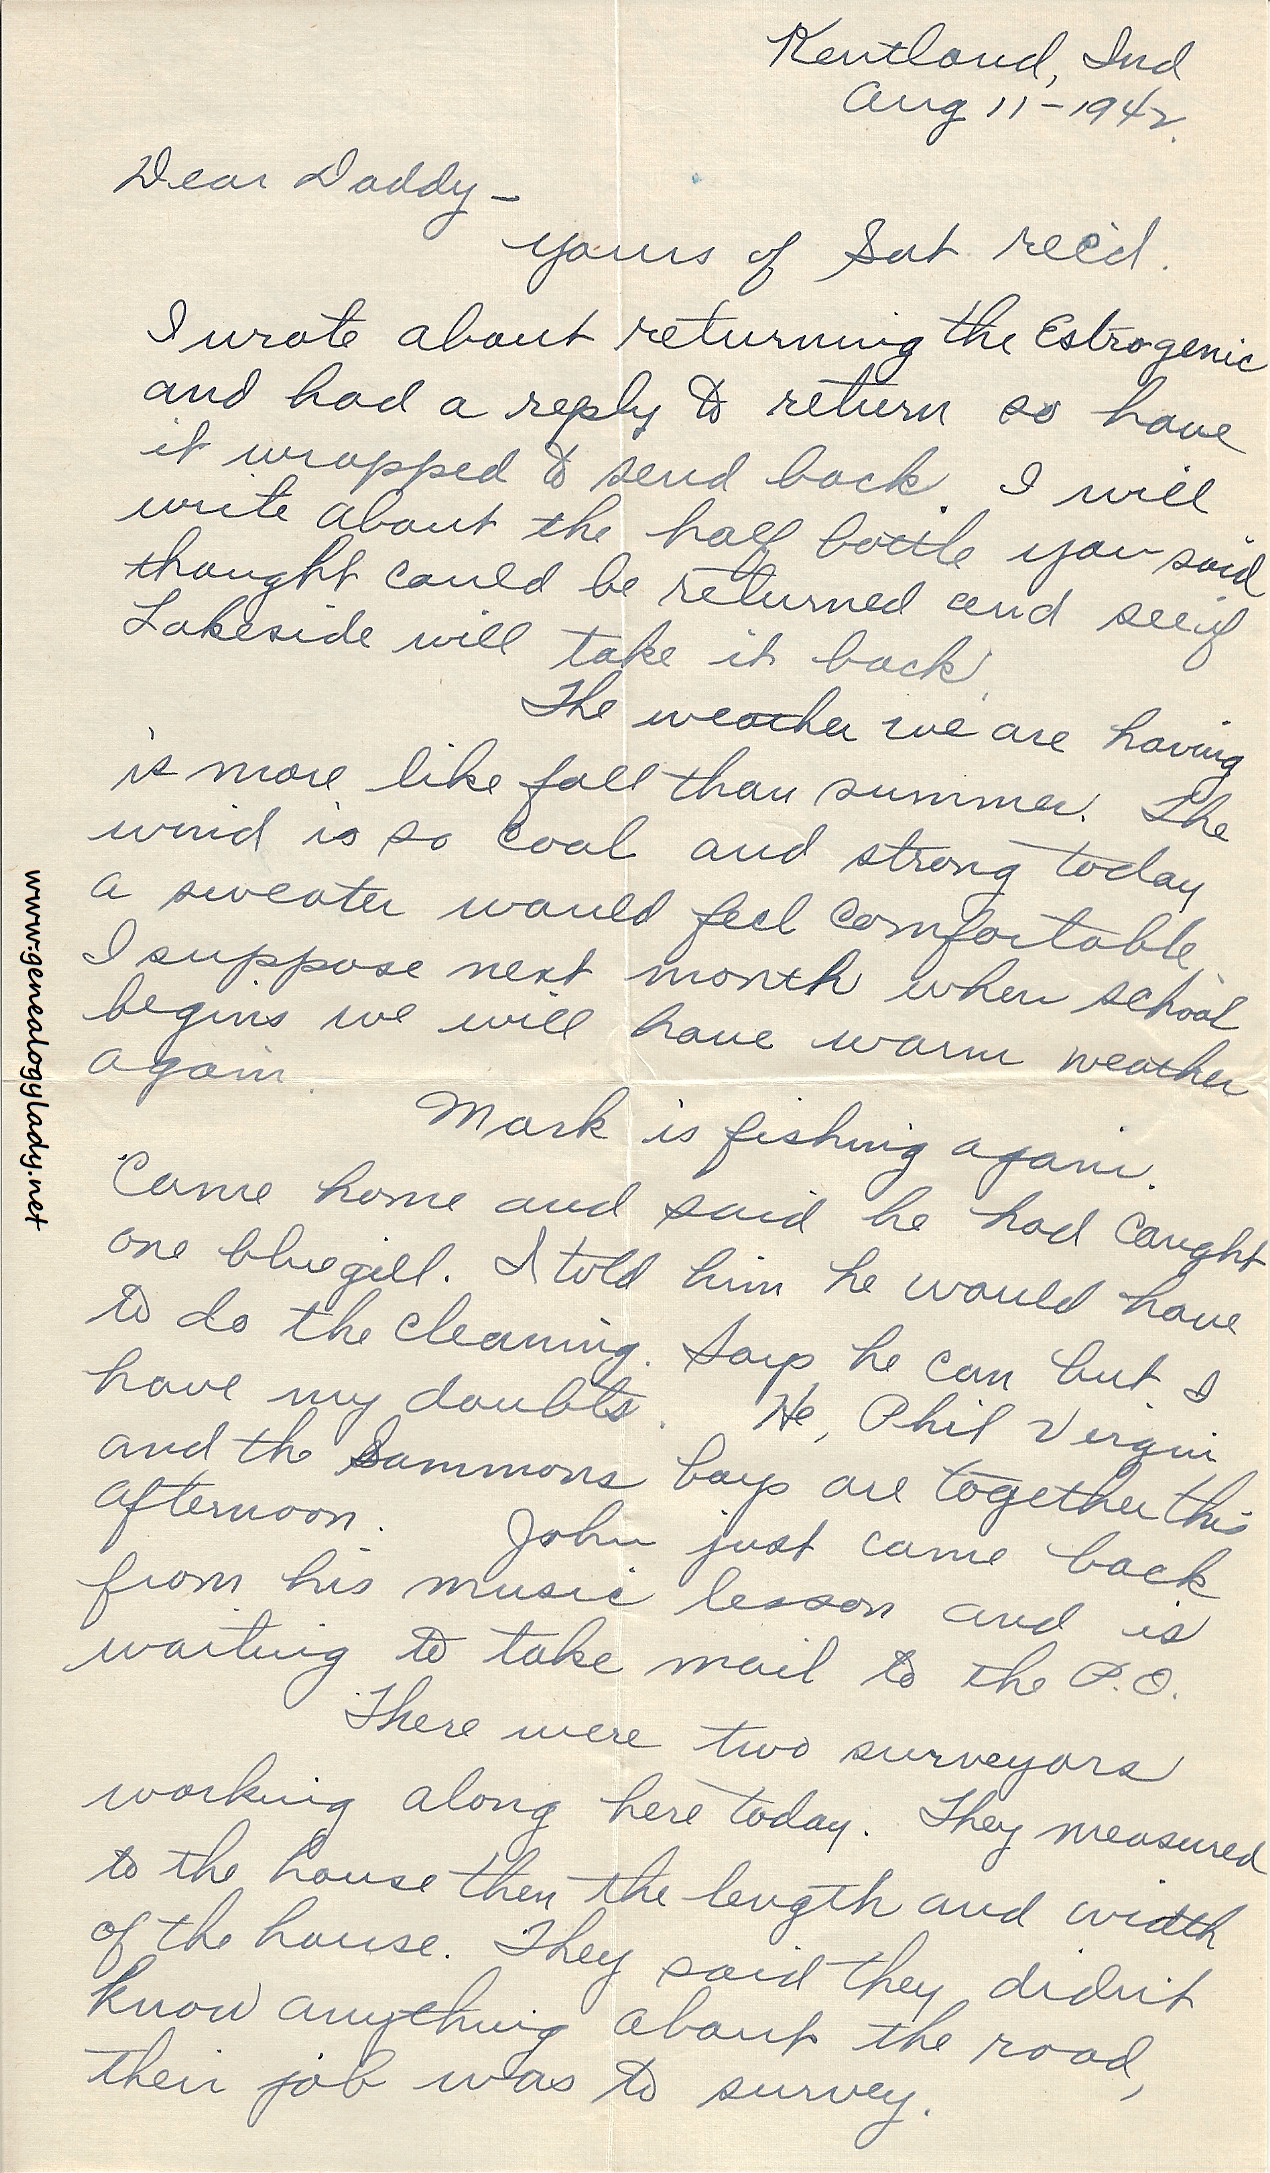 Kentland, Ind
Aug 11-1942.
Dear Daddy-
Yours of Sat rec'd.
I wrote about returning the Estrogenic
and had a reply to return so have
it wrapped to send back. I will
write about the half bottle you said
thought could be returned and see if
Lakeside will take it back.
The weather we are having
is more like fall than summer. The
wind is so cool and strong today
a sweater would feel comfortable.
I suppose next month when school
begins we will have warm weather
again.
Mark is fishing again.
Came home and said he had caught
one bluegill. I told him he would have
to do the cleaning. Says he can but I
have my doubts. He, Phil Virgin
and the Sammons boys are together this
afternoon. John just came back
from his music lesson and is
waiting to take mail to the P.O.
There were two surveyors
working along here today. They measured
to the house then the length and width
of the house. They said they didn't
know anything about the road,
their job was to survey.
www.genealogylady.net